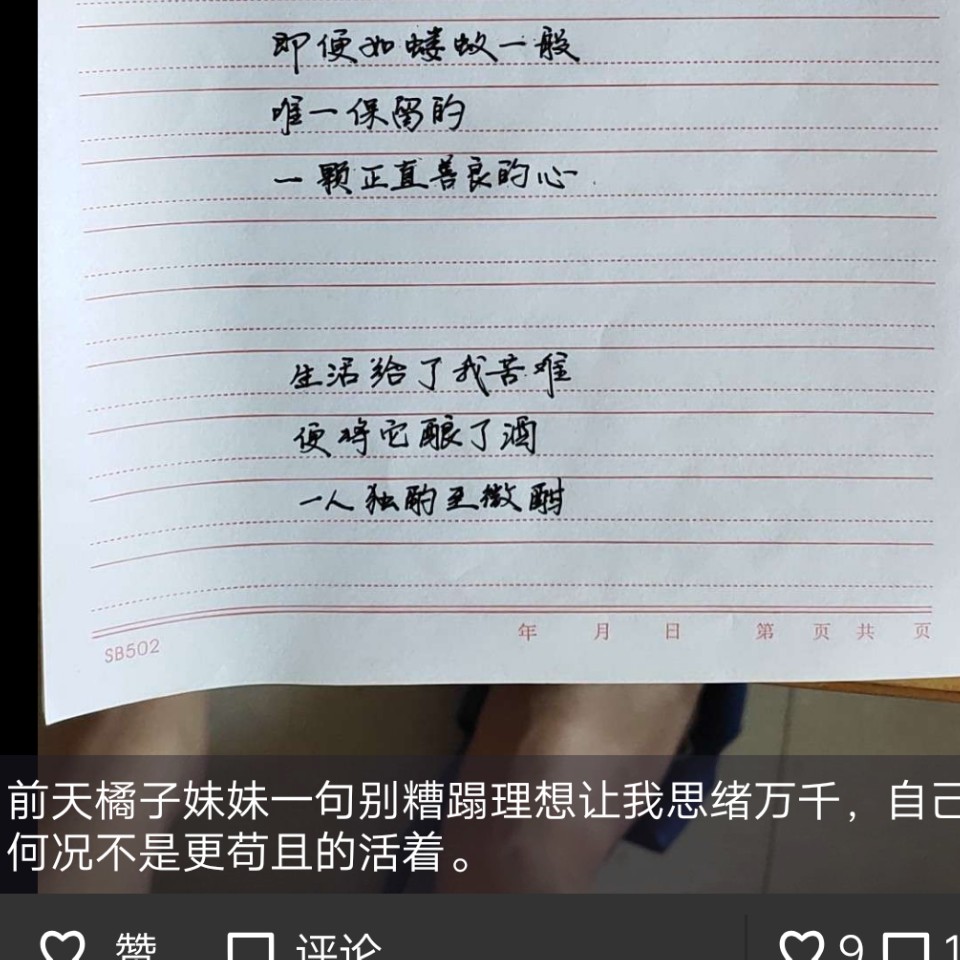 即便如蝼蚁一般
唯一保留的
一颗正直善良的心.
生活给了我苦难
便将它酿了酒
一人独酌至微酣
SB502
年 月 日 第 页 共 页
前天橘子妹妹一句别糟蹋理想让我思绪万千，自己
何况不是更苟且的活着。
赞 评论 9 1